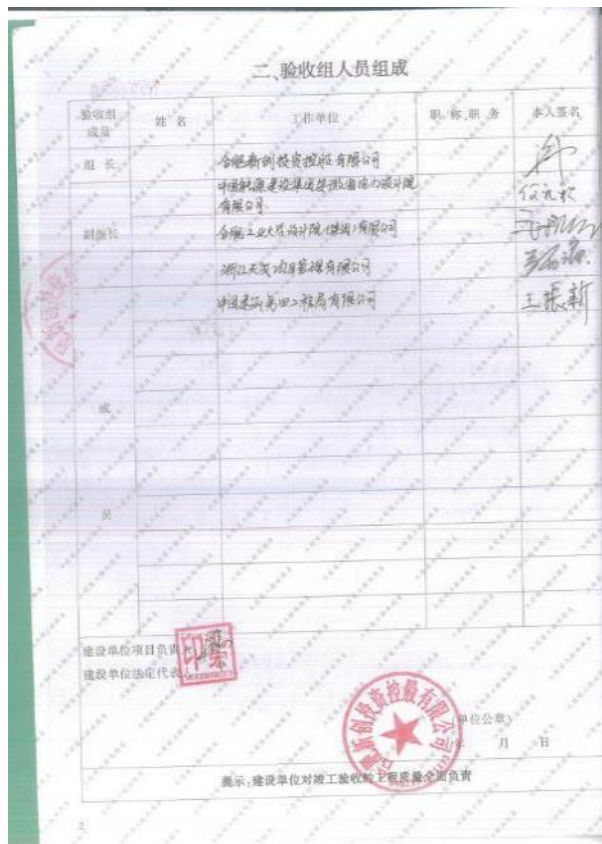 二、验收组人员组成
验收组成员 姓 名 工作单位 职 称、职 务 本人签名
组 长 合肥新创投资控股有限公司
中国能源建设集团安徽省电力设计院
有限公司
副组长 合肥工业大学设计院(集团)有限公司
浙江天成项目管理有限公司
中国建筑第四工程局有限公司 王振新
成
员
建设单位项目负责人
建设单位法定代表人
印
合肥新创投资控股有限公司
(单位公章)
年 月 日
提示:建设单位对竣工验收的工程质量全面负责
2